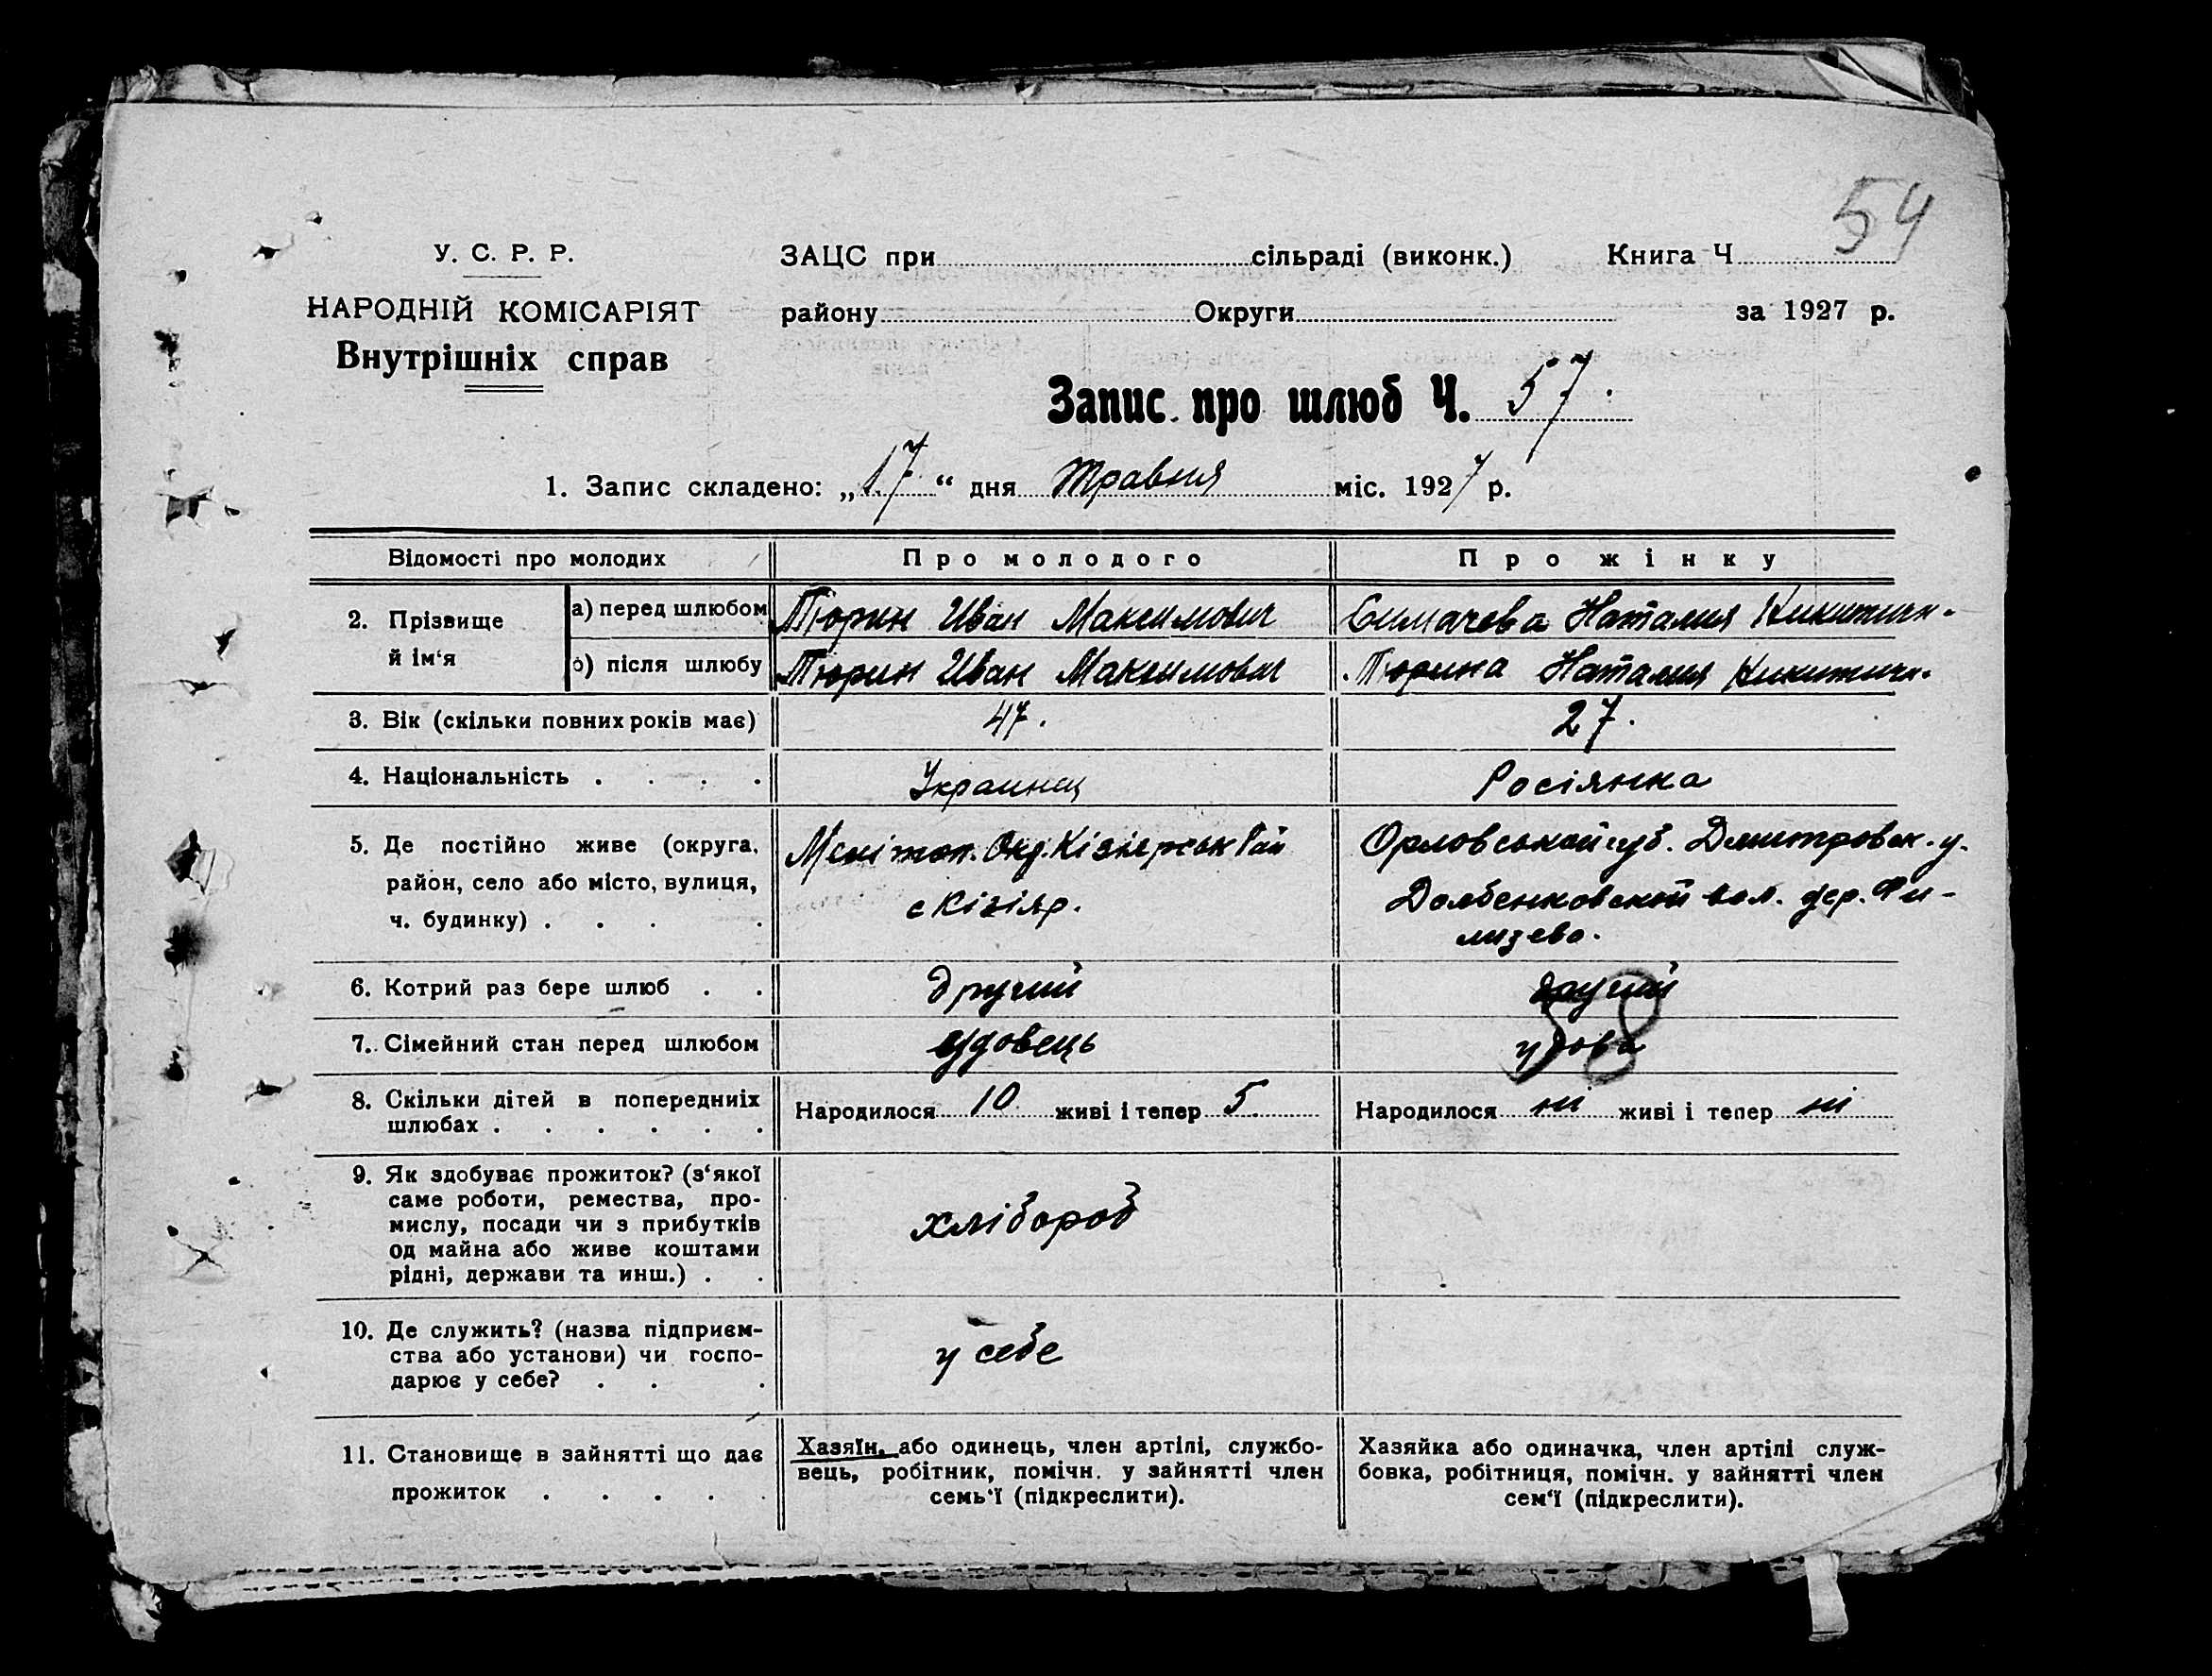 54
У. С. Р. Р.
НАРОДНІЙ КОМІСАРІЯТ
Внутрішніх справ
ЗАЦС при сільраді (виконк.) Книга Ч
району Округи за 1927 р.
Запис про шлюб Ч. 57.
1. Запис складено: „17“ дня травня міс. 1927 р.
Відомості про молодих Про молодого Про жінку
2. Прізвище й ім‘я
а) перед шлюбом Тюрин Иван Максимович Симачева Наталия Никитичн.
б) після шлюбу Тюрин Иван Максимович Тюрина Наталия Никитичн.
3. Вік (скільки повних років має) 47. 27.
4. Національність . . . . Украинец Росіянка
5. Де постійно живе (округа,
район, село або місто, вулиця,
ч. будинку) . . . .
Мелітоп. Окр. Кізіярськ Рай
с Кізіяр.
Орловськой губ. Дмитровск. у.
Долбенковской вол. дер. Фи-
лизево.
6. Котрий раз бере шлюб . . другий другий
7. Сімейний стан перед шлюбом удовець удова
8. Скільки дітей в попередниіх
шлюбах . . . . . .
Народилося 10 живі і тепер 5. Народилося ні живі і тепер ні
9. Як здобуває прожиток? (з‘якої
саме роботи, ремества, про-
мислу, посади чи з прибутків
од майна або живе коштами
рідні, держави та инш.) . .
хлібороб
10. Де служить? (назва підприєм-
ства або установи) чи госпо-
дарює у себе? . . .
у себе
11. Становище в зайнятті що дає
прожиток . . . . .
Хазяїн, або одинець, член артілі, службо-
вець, робітник, помічн. у зайнятті член
семь‘ї (підкреслити).
Хазяйка або одиначка, член артілі служ-
бовка, робітниця, помічн. у зайнятті член
сем‘ї (підкреслити).